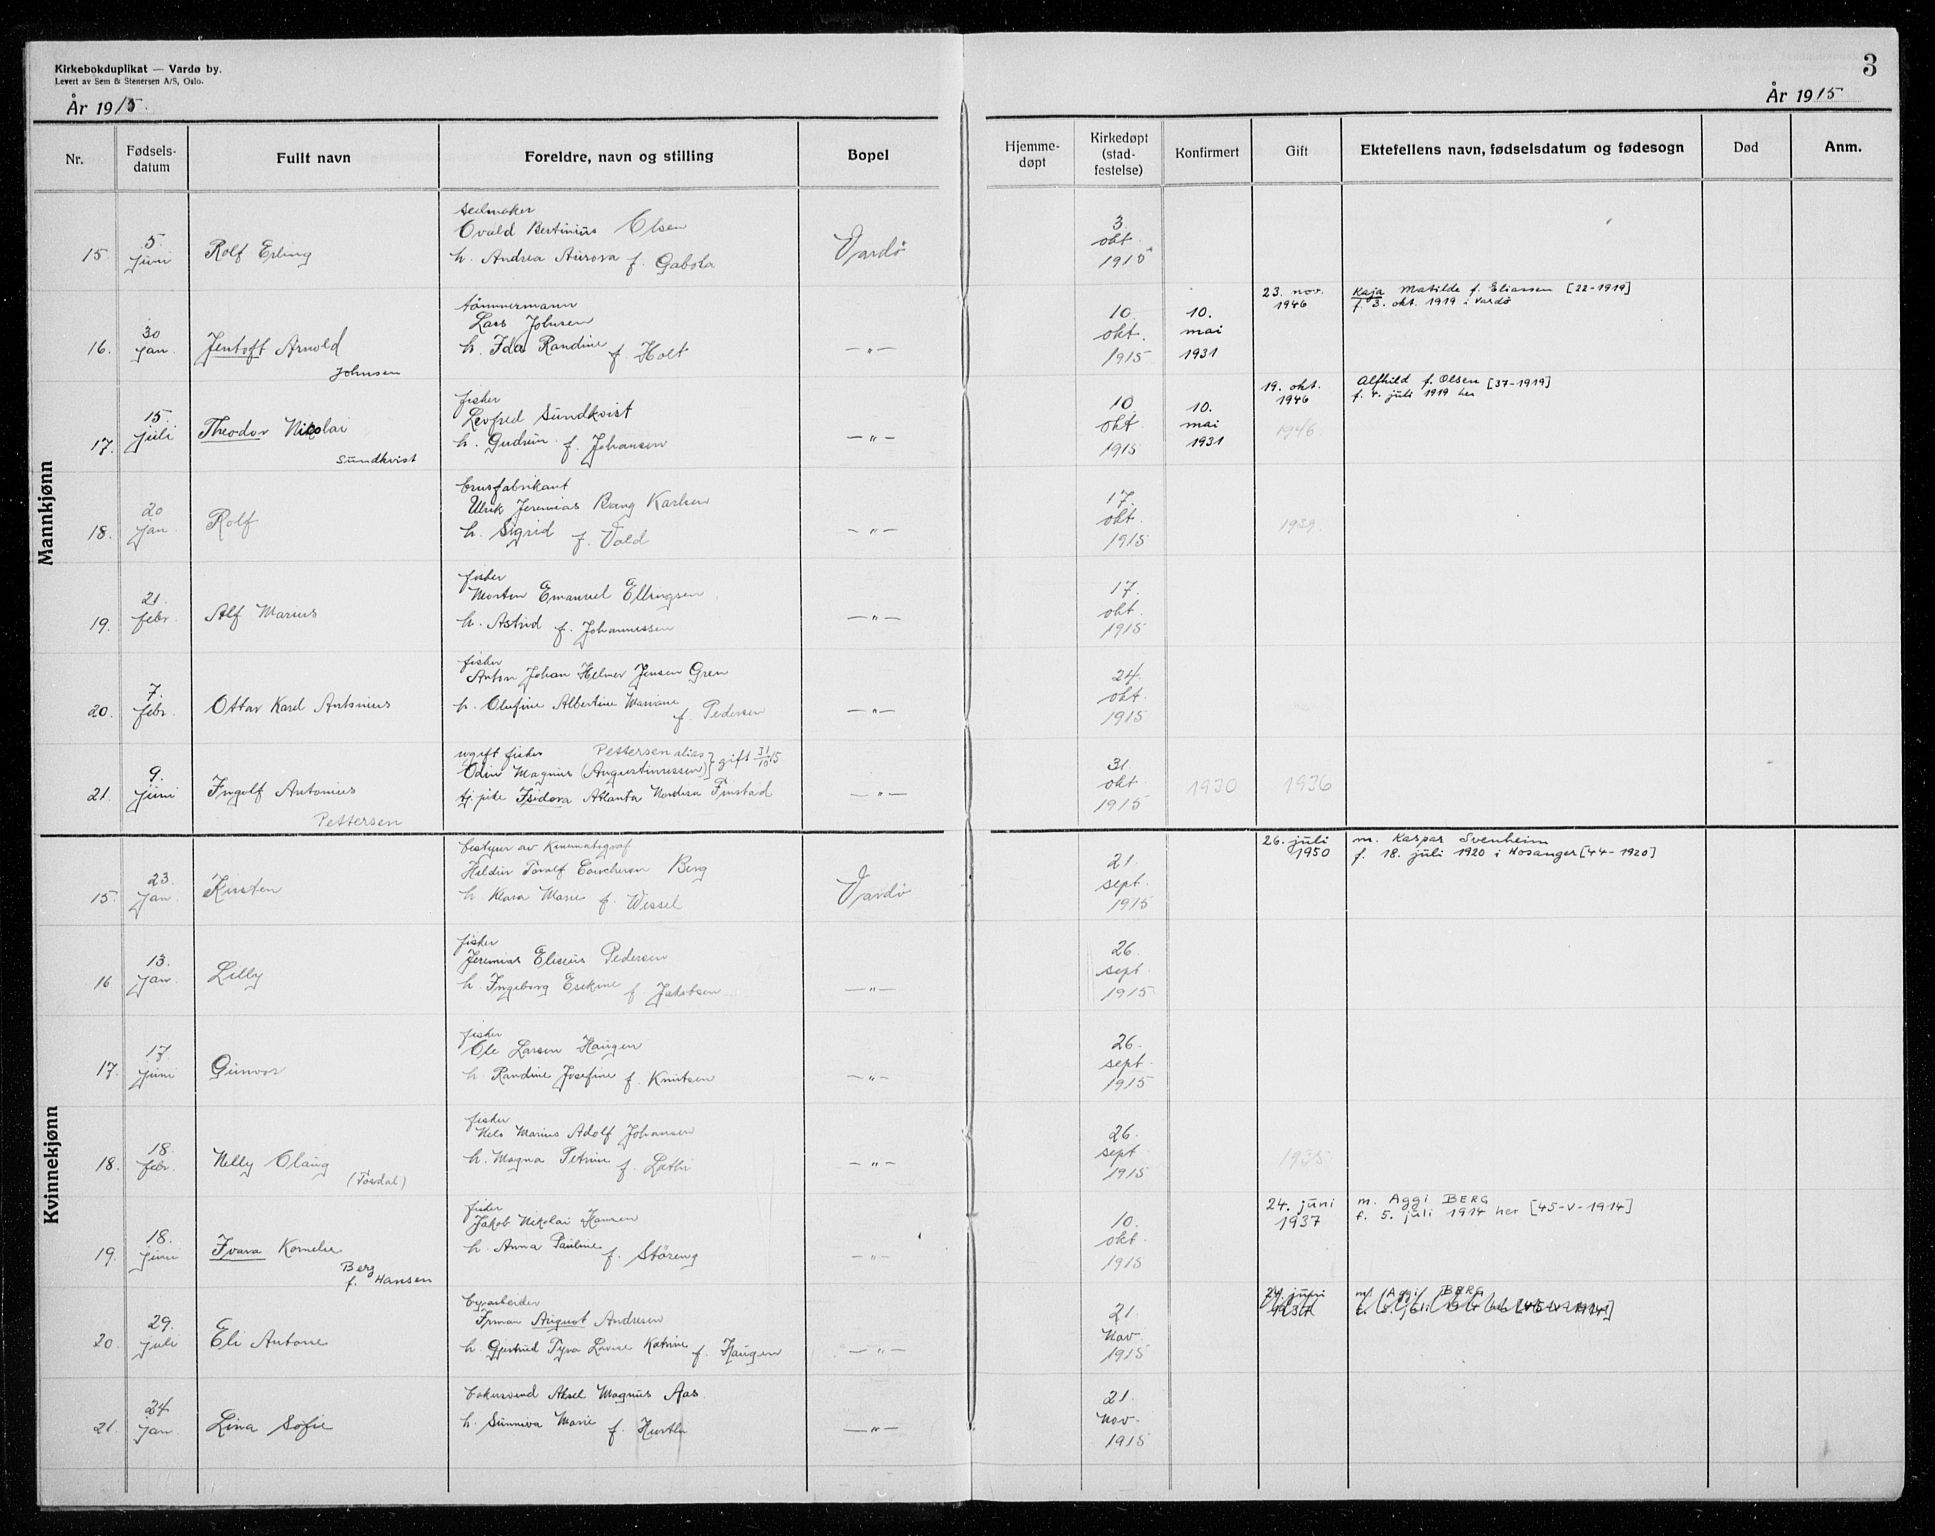 Kirkebokduplikat — Vardø by.
Levert av Sem & Stenersen A/S, Oslo.
År 1915.
3
År 1915
Nr.
Fødsels-
datum
Fullt navn
Foreldre, navn og stilling
Bopel
Hjemme-
døpt
Kirkedøpt
(stad-
festelse)
Konfirmert
Gift
Ektefellens navn, fødselsdatum og fødesogn
Død
Anm.
Mannkjønn
15. 5. juni
Rolf Erling
seilmaker
Ovald Bertinius Olsen
h. Andrea Aurora f. Gabola
Vardø
3. okt. 1915
16. 30 jan.
Jentoft Arnold
Johnsen
tømmermann
Lars Johnsen
h. Ida Randine f. Holt
—"—
10. okt. 1915
10. mai 1931
23. nov. 1946
Kaja Matilde f. Eliassen [22-1919]
f. 3. okt. 1919 i Vardö
17. 15 juli
Theodor Nikolai
Sundkvist
fisker
Levfred Sundkvist
h. Gudrun f. Johansen
—"—
10. okt. 1915
10. mai 1931
19. okt. 1946
1946
Alfhild f. Olsen [37-1919]
f. 4. juli 1919 her
18. 20 jan.
Rolf
brusfabrikant
Ulrik Jeremias Bang Karlsen
h. Sigrid f. Vold
—"—
17. okt. 1915
1939
19. 21. febr.
Alf Marius
fisker
Morten Emanuel Ellingsen
h. Astrid f. Johannessen
—"—
17. okt. 1915
20. 7. febr.
Ottar Karel Antonius
fisker
Anton Johan Helmer Jensen Gren
h. Olufine Albertine Mariane
f. Pedersen
—"—
24. okt. 1915
21. 9. juni
Ingolf Antonius
Pettersen
ugift fisker Pettersen alias
Odin Magnus (Augustinussen) } gift 31/10 15
tj. pike Isidora Atlanta Nordisa Finstad
—"—
31. okt 1915
1930
1936
Kvinnekjønn
15. 23. jan.
Kirsten
bestyrer av Kinematograf
Berg
h. Klara Marie f. Wessel
Vardø
21. sept. 1915
26. juli 1950
m. Kaspar Svenheim
f. 18. juli 1920 i Hosanger [44-1920]
16 13. jan.
Lilly
fisker
Jeremias Eliseus Pedersen
h. Ingeborg Esekine f. Jakobsen
—"—
26. sept. 1915
17. 17. juni
Gunvor
fisker
Ole Larsen Haugen
h. Randine Josefine f. Knutsen
—"—
26. sept. 1915
18. 18. febr.
Nelly Olaug
(Tosdal)
fisker
Nels Marius Adolf Johansen
h. Magna Petrine f. Lathi
—"—
26. sept 1915
1935
19. 18. juni
Ivara Kornelie
Berg
f. Hansen
fisker
Jakob Nikolai Hansen
h. Anna Pauline f. Støreng
—"—
10. okt. 1915
24. juni 1937
m. Aggi BERG
f. 5. juli 1914 her [45-V-1914]
20 29. juli
Eli Antone
byarbeider
August Andresen
h. Gjertrud Tyra Lovise Katrine f. Haugen
—"—
21. Nov. 1915
24. juni 1937
m. Aggi BERG
f. 5. juli 1914 her [45-V-1914]
21. 24 jan.
Lina Sofie
bakersvend Aksel Magnus Aas.
h. Sunneva Marie f. Hustla
—"—
21. Nov. 1915